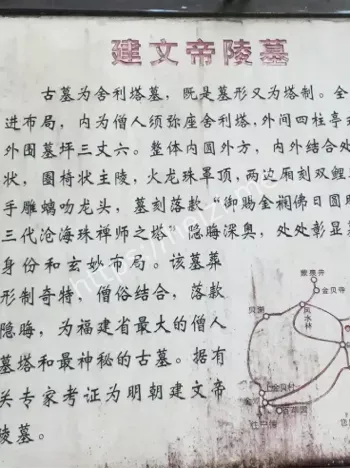 建文帝陵墓
古墓为舍利塔墓，既是墓形又为塔制。全
进布局，内为僧人须弥座舍利塔，外间四柱亭
外围墓坪三丈六。整体内圆外方，内外结合处
状，圈椅状主陵，火龙珠罩顶，两边厢刻双鲤
手雕螭吻龙头，墓刻落款“御赐金襕佛日圆
三代沧海珠禅师之塔”隐晦深奥，处处彰显
身份和玄妙布局。该墓葬
形制奇特，僧俗结合，落款
隐晦，为福建省最大的僧人
墓塔和最神秘的古墓。据有
关专家考证为明朝建文帝
陵墓。
金贝井
凤水林
上金贝村